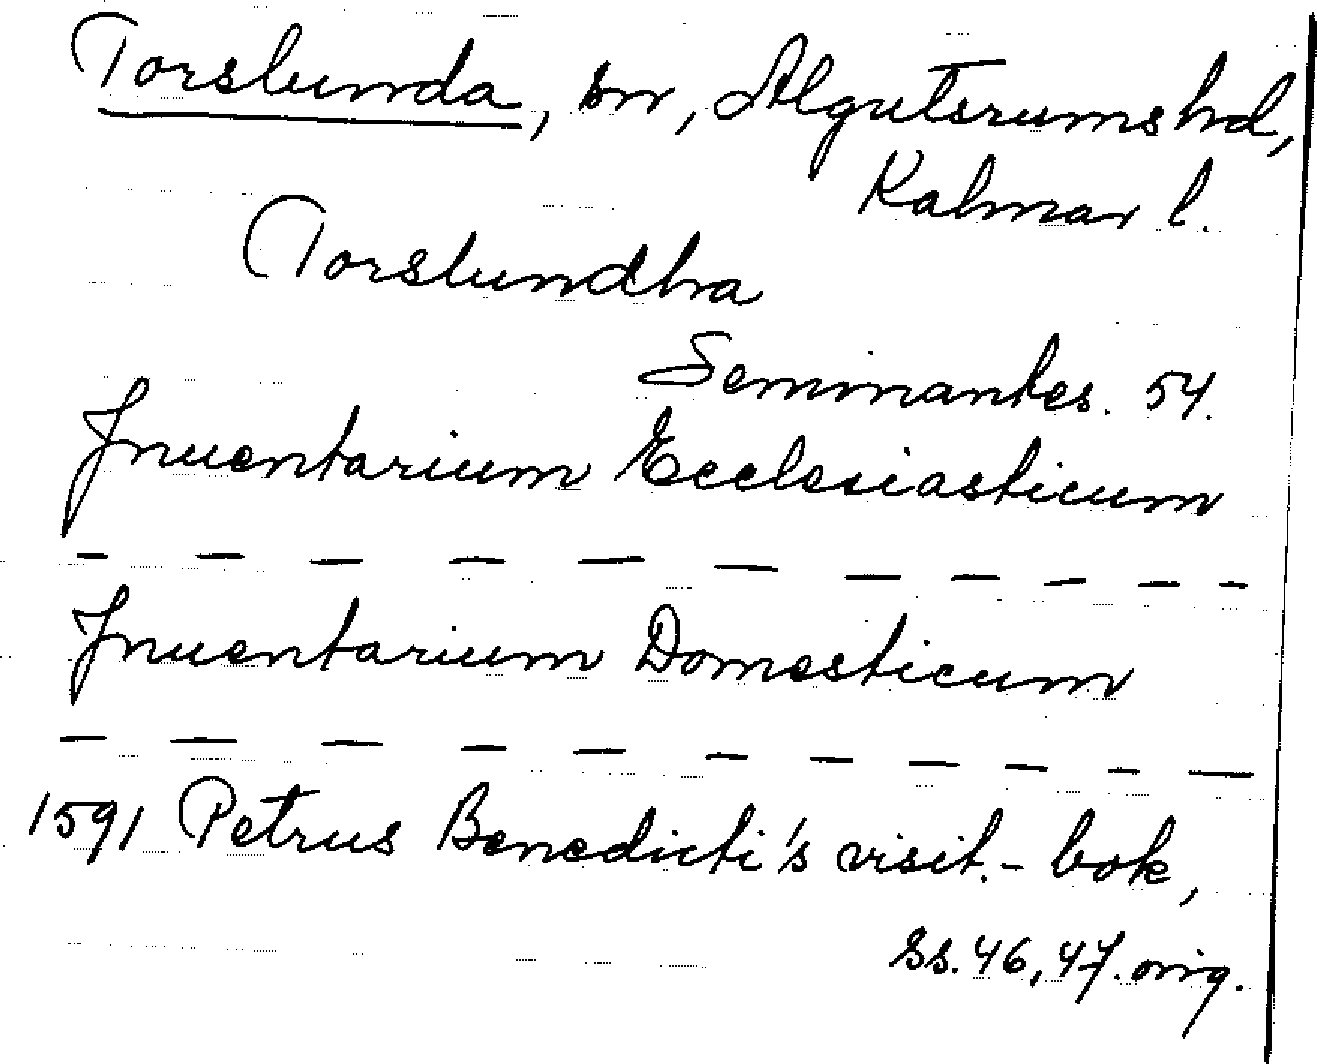 Torslunda, sn, Algutsrums hd,
Kalmar l.
Torslundha
Seminantes. 54.
Inuentarium Ecclesiasticum
— — — — — — — — — — —
Inuentarium Domesticum
— — — — — — — — — — —
1591 Petrus Benedicti's visit.- bok,
ss. 46, 47. orig.